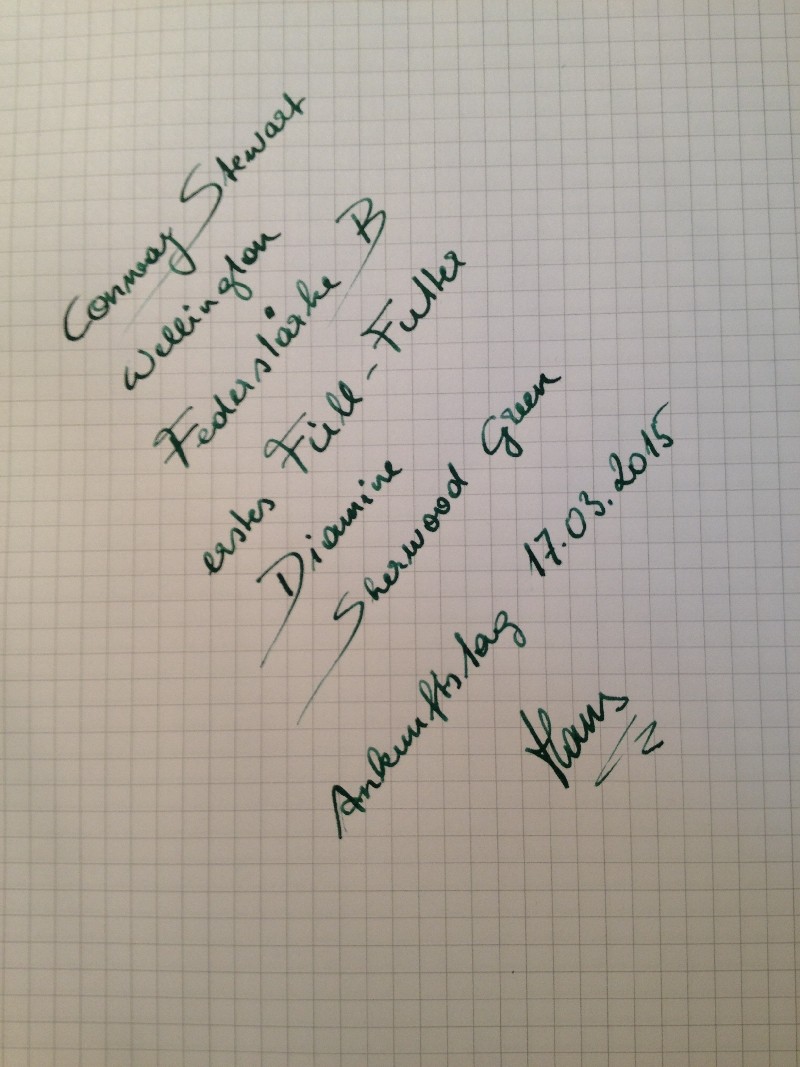 Conway Stewart
Wellington
Federstärke B
erstes Füll-Futter
Diamine
Sherwood Green
Ankunftstag 17.03.2015
Hans